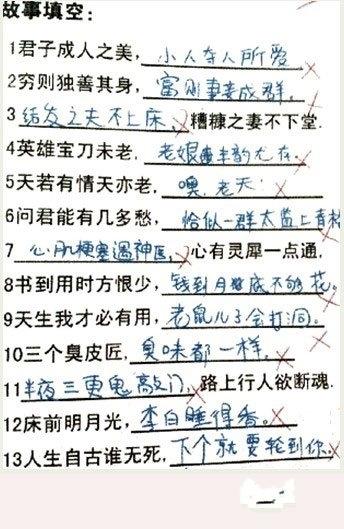 故事填空：
1君子成人之美，小人夺人所爱
2穷则独善其身，富则妻妾成群。
3结发之夫不上床，糟糠之妻不下堂.
4英雄宝刀未老，老娘丰韵尤存.
5天若有情天亦老，噢，老天
6问君能有几多愁，恰似一群太监上青楼
7心肌梗塞遇神医，心有灵犀一点通.
8书到用时方恨少，钱到月底不够花。
9天生我才必有用，老鼠儿子会打洞.
10三个臭皮匠，臭味都一样。
11半夜三更鬼敲门，路上行人欲断魂.
12床前明月光，李白睡得香。
13人生自古谁无死，下个就要轮到你.